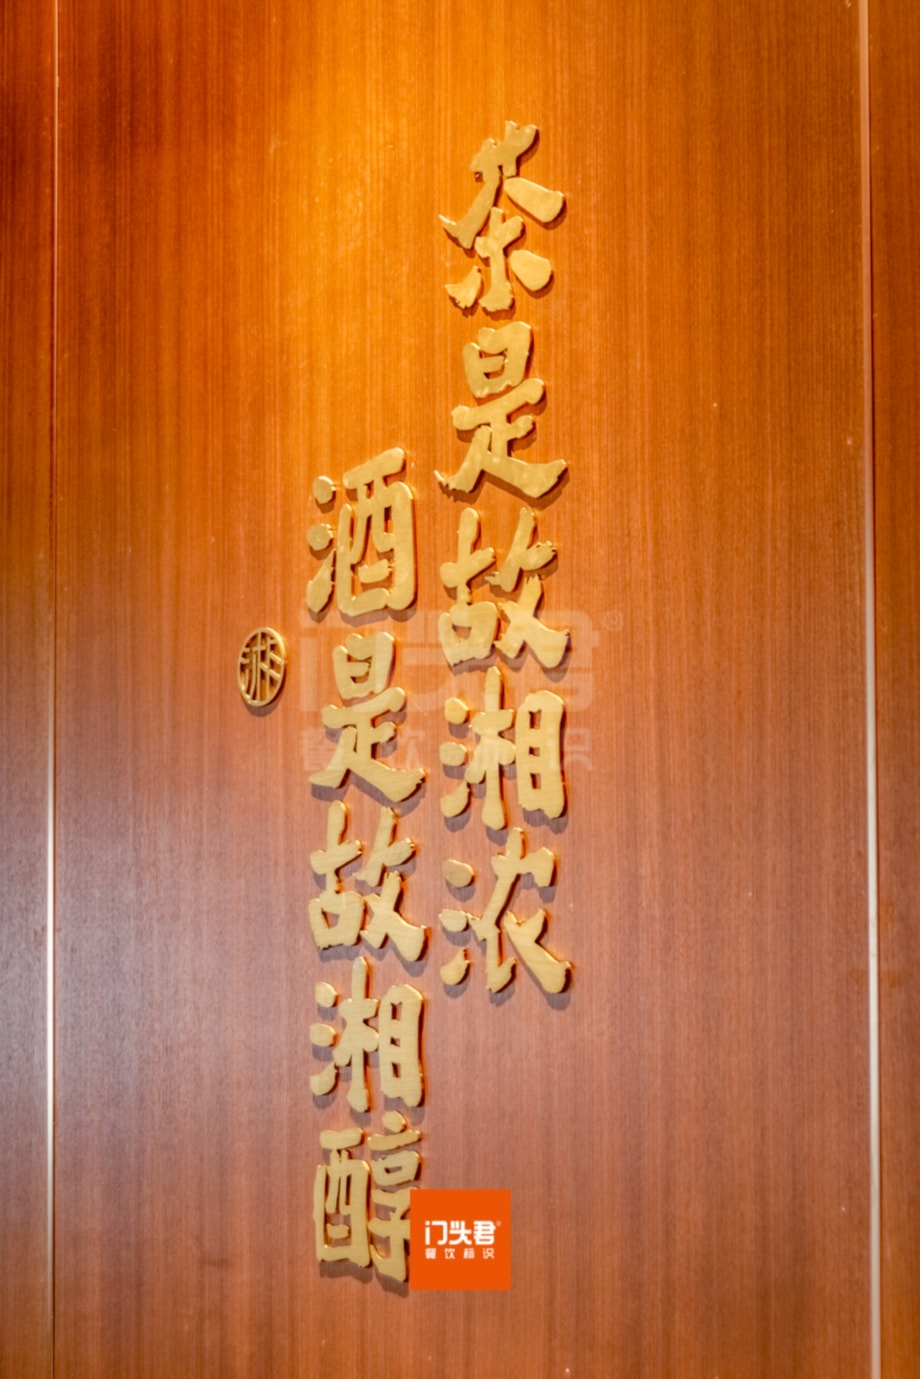 茶是故湘浓
酒是故湘醇
湘
门头君®
餐饮标识
门头君®
餐饮标识